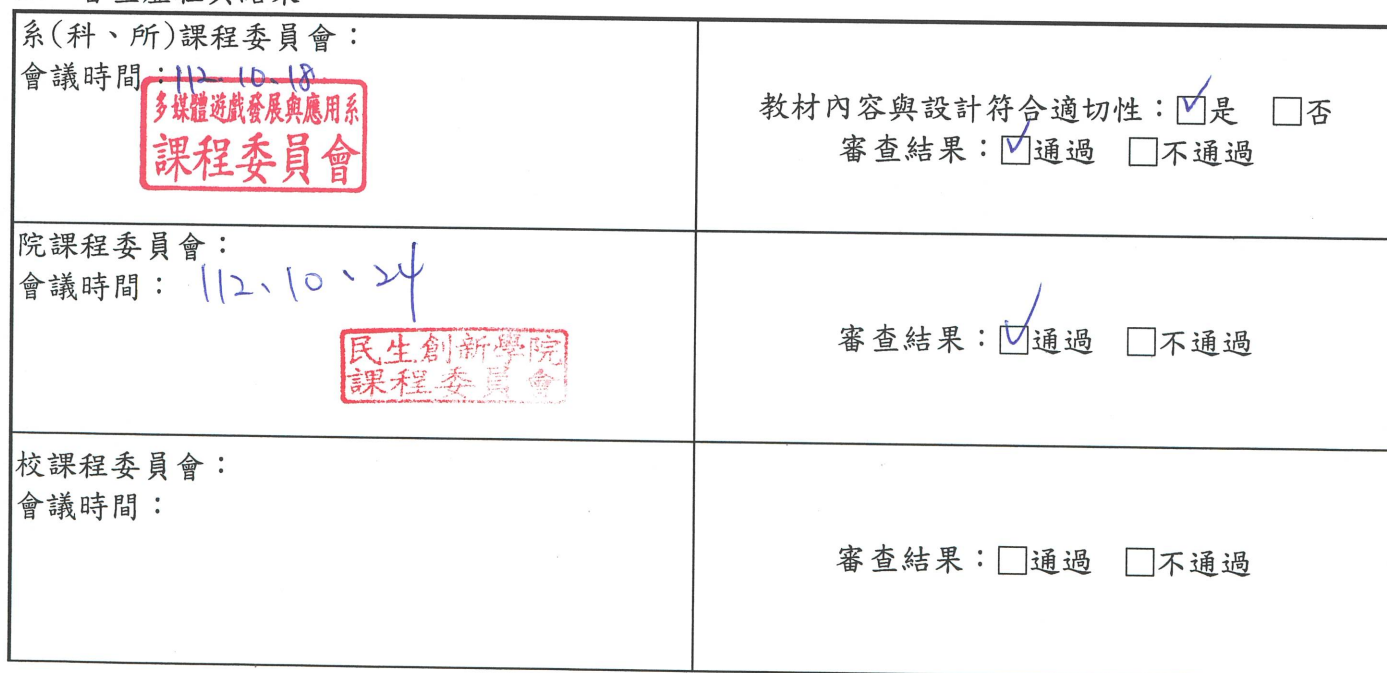 系(科、所)課程委員會：
會議時間：112.10.18
多媒體遊戲發展與應用系
課程委員會
教材內容與設計符合適切性：☑是 □否
審查結果：☑通過 □不通過
院課程委員會：
會議時間： 112、10、24
民生創新學院
課程委員會
審查結果：☑通過 □不通過
校課程委員會：
會議時間：
審查結果：□通過 □不通過